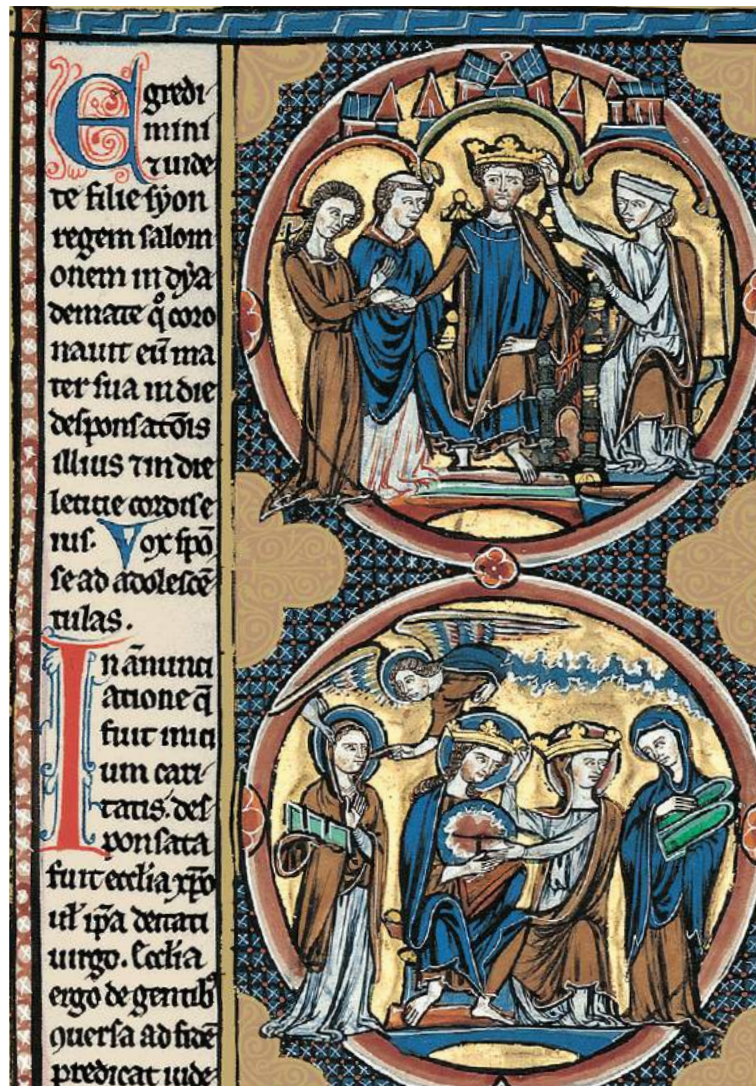 Egredi
mini
⁊ uide
te filie syon
regem salom
onem in dya
demate q̊ coro
nauit eū ma
ter sua in die
desponsatōis
illius ⁊ in die
letitie cordis e
ius. Vox spō
se ad adolescē
tulas.
In ānunci
atione q̄
fuit inici
um cari
tatis. des
ponsata
fuit ecclīa xp̄o
ul̄ ip̄a deitati
uirgo. Ecclīa
ergo de gentibꝰ
ꝯuersa ad fidē
predicat uide